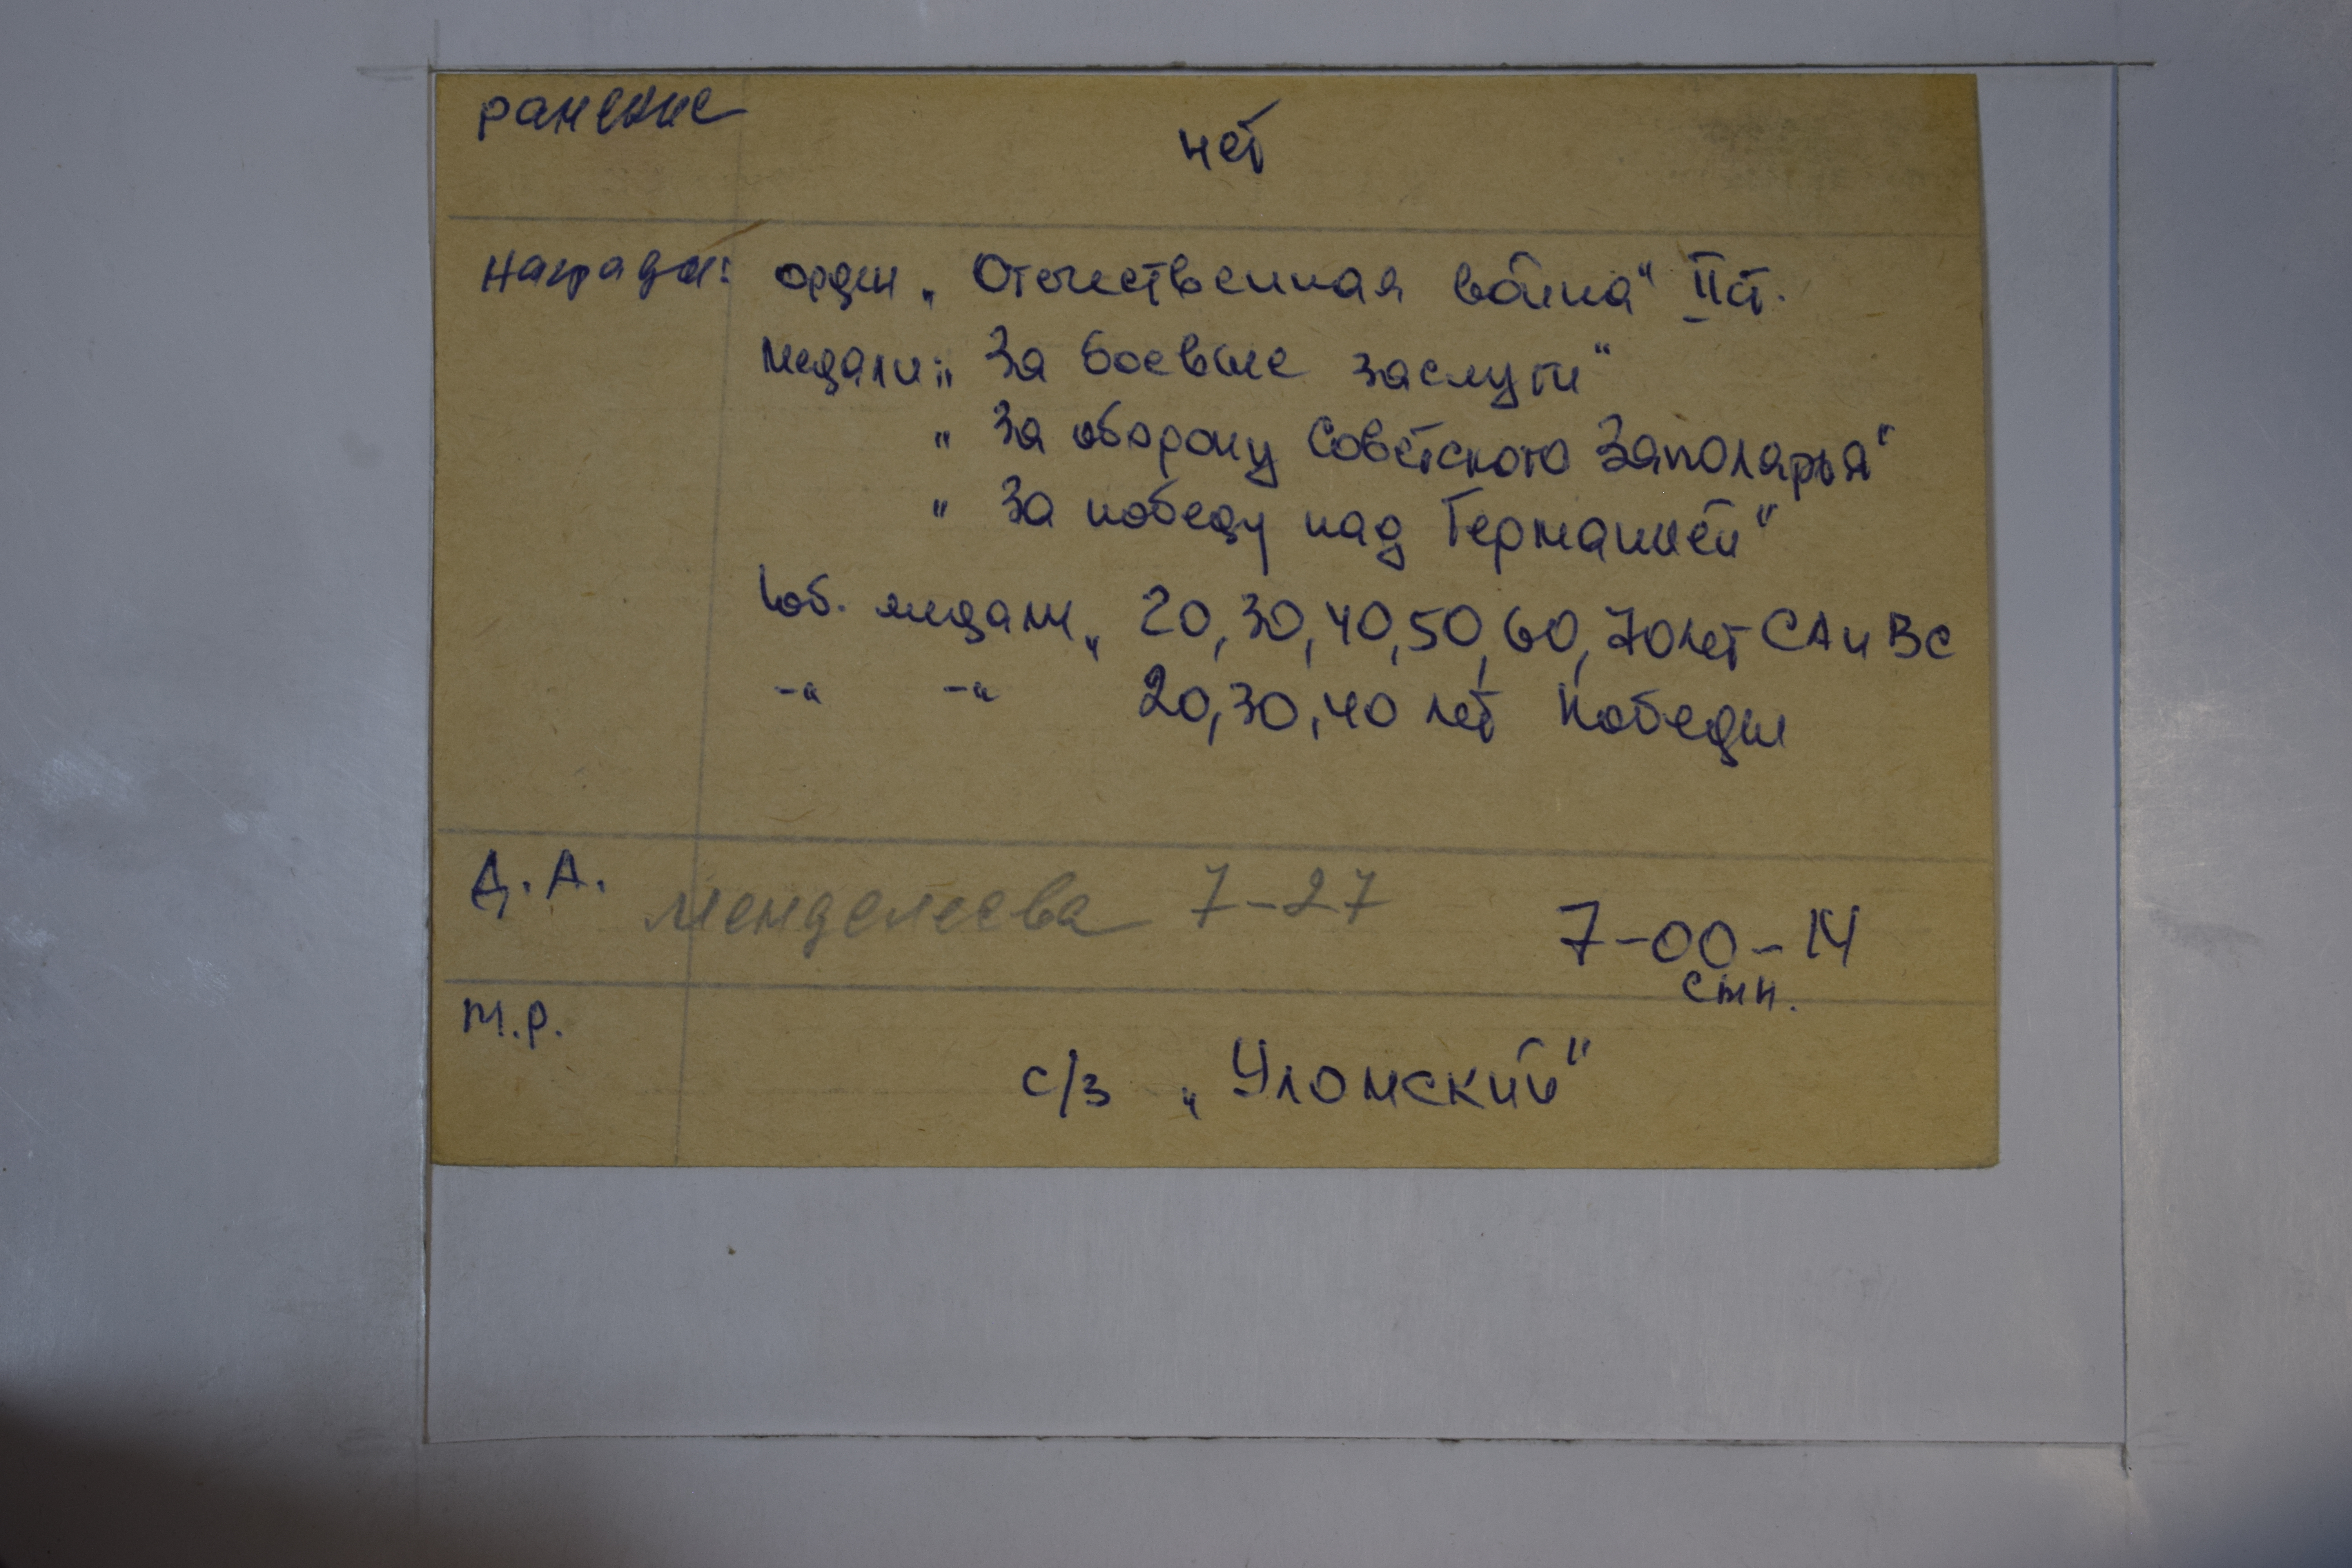 ранение
нет
Награды: орден „Отечественная война" II ст.
Медали: „За боевые заслуги"
„За оборону Советского Заполярья"
„За победу над Германией"
Юб. медали „20, 30, 40, 50, 60, 70 лет СА и ВС
-„ -„ 20, 30, 40 лет Победы
Д.А. Менделеева 7-27
7-00-14
М.Р.
с/з „Уломский"